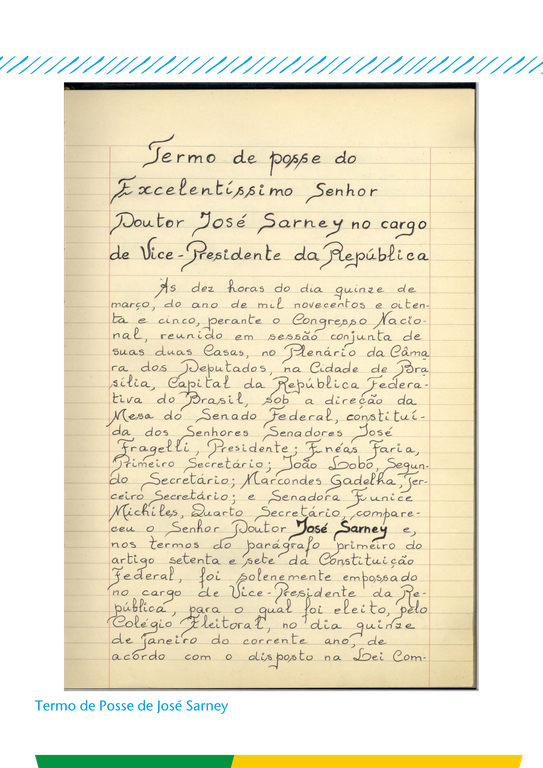 Termo de posse do
Excelentíssimo Senhor
Doutor José Sarney no cargo
de Vice-Presidente da República
Às dez horas do dia quinze de
março, do ano de mil novecentos e oiten-
ta e cinco, perante o Congresso Nacio-
nal, reunido em sessão conjunta de
suas duas Casas, no Plenário da Câma
ra dos Deputados, na Cidade de Bra
sília, Capital da República Federa-
tiva do Brasil, sob a direção da
Mesa do Senado Federal, constituí-
da dos Senhores Senadores José
Fragelli, Presidente; Enéas Faria,
Primeiro Secretário; João Lobo, Segun-
do Secretário; Marcondes Gadelha, Ter-
ceiro Secretário; e Senadora Eunice
Michiles, Quarto Secretário, compare-
ceu o Senhor Doutor José Sarney e,
nos termos do parágrafo primeiro do
artigo setenta e sete da Constituição
Federal, foi solenemente empossado
no cargo de Vice-Presidente da Re-
pública, para o qual foi eleito, pelo
Colégio Eleitoral, no dia quinze
de janeiro do corrente ano, de
acôrdo com o disposto na Lei Com-
Termo de Posse de José Sarney